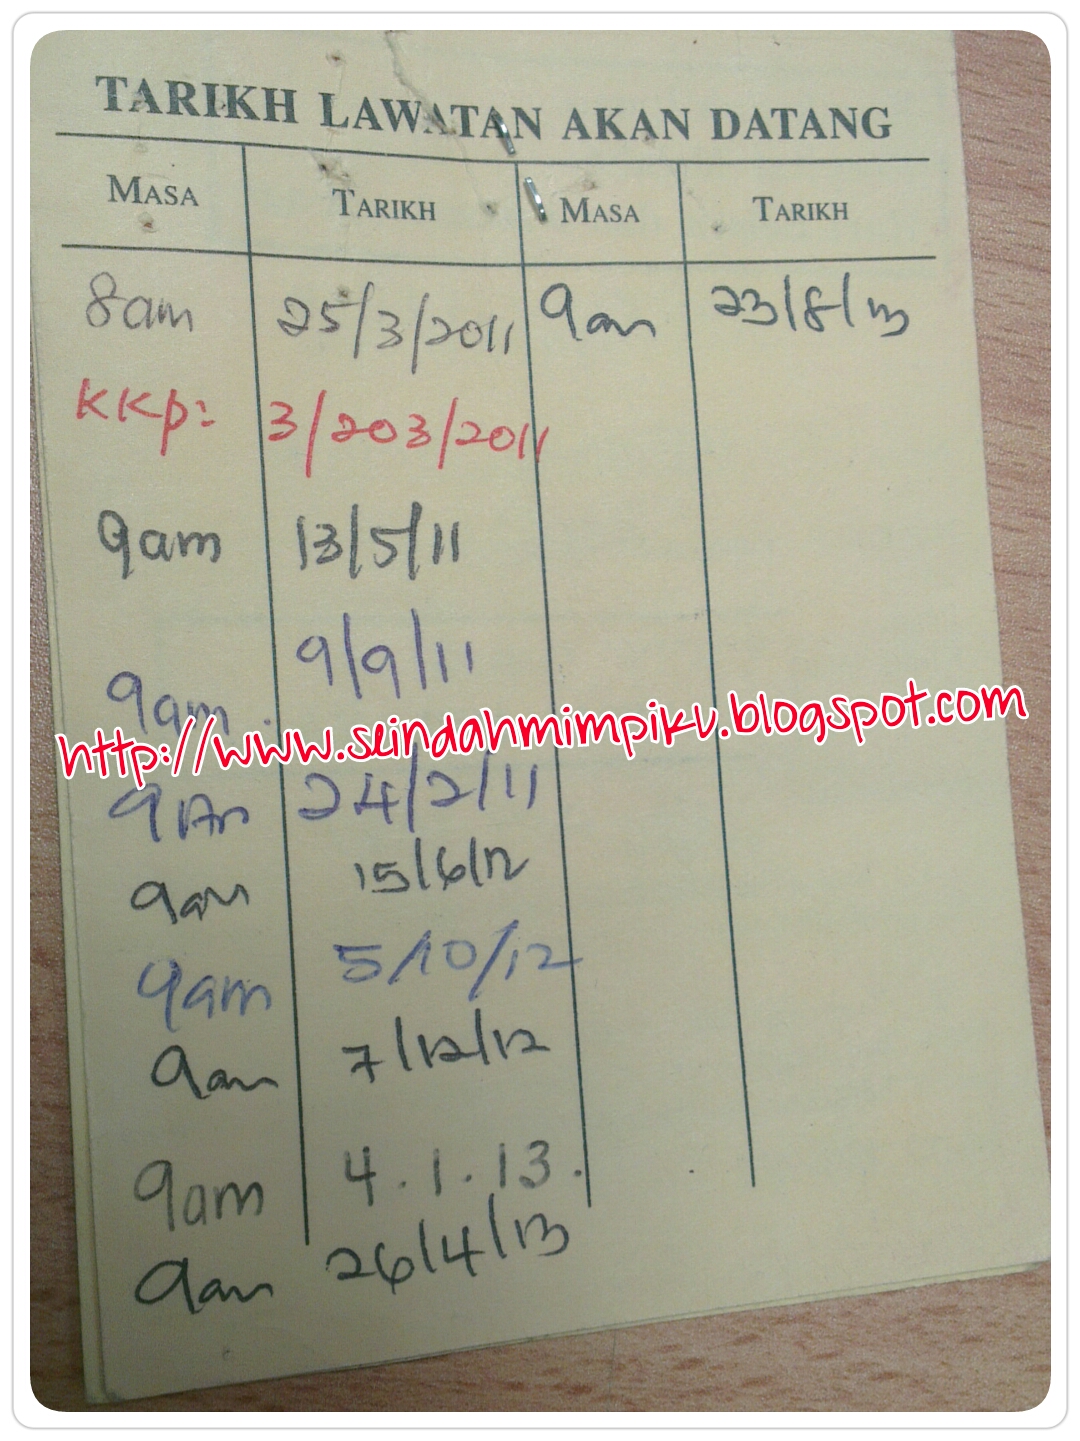 TARIKH LAWATAN AKAN DATANG
MASA TARIKH MASA TARIKH
8am 25/3/2011 9am 23/8/13
KKp: 3/203/2011
9am 13/5/11
9am 9/9/11
http://www.seindahmimpiku.blogspot.com
9am 24/2/11
9am 15/6/12
9am 5/10/12
9am 7/12/12
9am 4.1.13.
9am 26/4/13